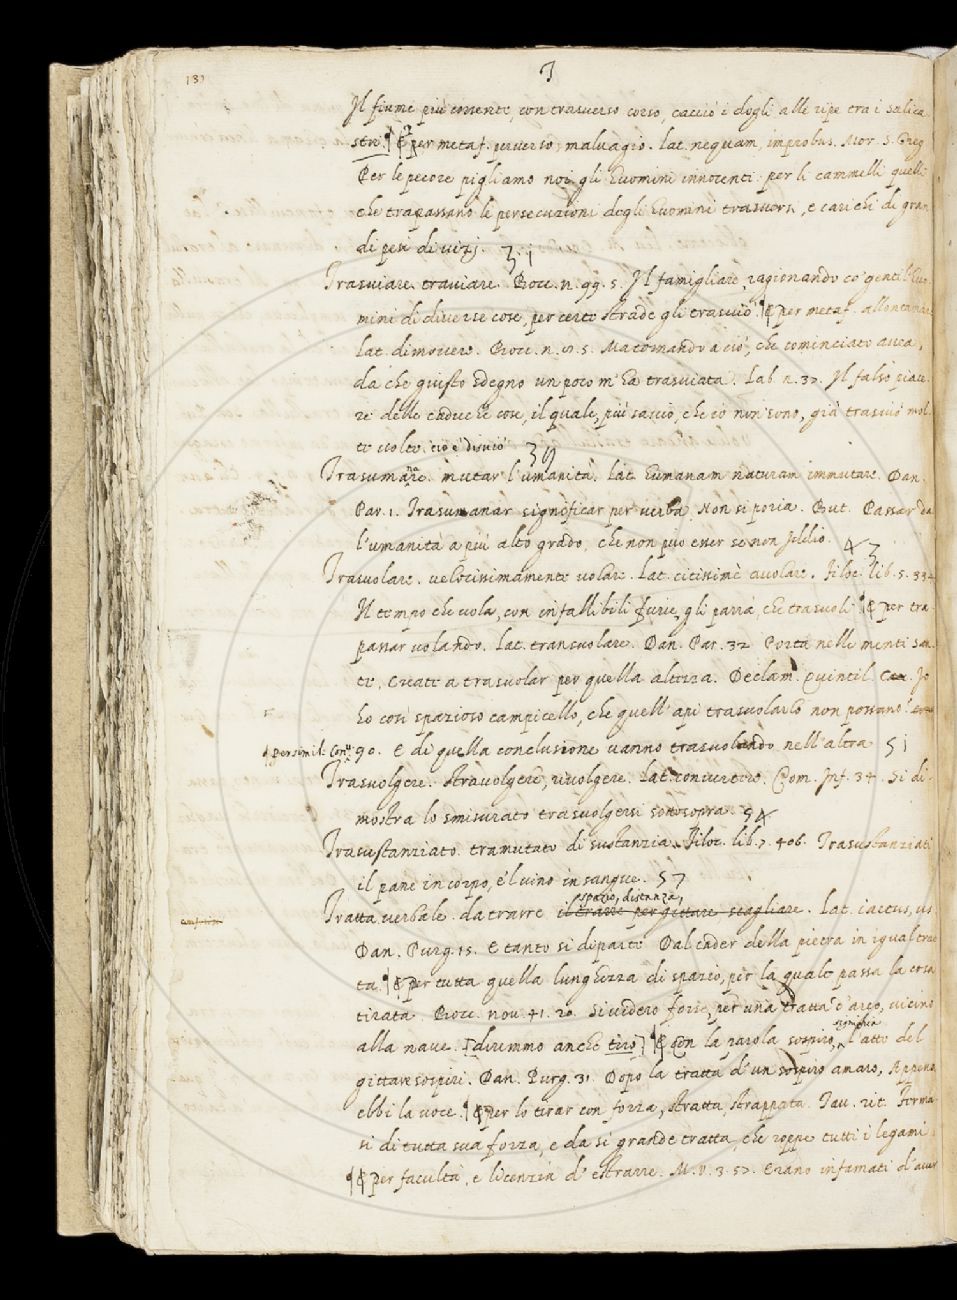 T
Il fiume più corrente, con trasverso corso, cacciò i dogli alle ripe tra i salica
stri. ¶ E per metaf. perverso, malvagio. Lat. nequam, improbus. Mor. S. Greg.
Per le pecore pigliamo noi gli huomini innocenti: per li cammelli quelli
che trapassano le persecuzioni degli huomini trasversi, e carichi di gran
di pesi di vizj.
Trasviare. traviare. Bocc. n. 99. 5. Il famigliare, ragionando co' gentil'huo
mini di diverse cose, per certe strade gli trasviò. ¶ E per metaf. allontanare
Lat. dimovere. Bocc. n. 5. Ma tornando a ciò, che cominciato avea,
da che giusto sdegno un poco m'ha trasviata. Lab. n. 37. Il falso piace
re delle caduche cose, il quale, più saccio, che io non sono, già trasviò mol
te volte. cio è disviò
Trasumanare. mutar l'umanità. Lat. humanam naturam immutare. Dan.
Par. 1. Trasumanar significar per verba Non si poria. But. Passar da
l'umanità a più alto grado, che non può esser se non Iddio. 43
Trasvolare. velocissimamente volare. Lat. citissimè avolare. Filoc. lib. 5. 334
Il tempo che vola, con infallibili furie, gli parrà, che trasvoli ¶ E per tra
passar volando. Lat. transvolare. Dan. Par. 32 Porta nelle menti san
te, Create a trasvolar per quella altezza. Declam. Quintil. Io
ho così spazioso campicello, che quell'api trasvolarlo non possano.
per simil: Con. 90. E di quella conclusione vanno trasvolando nell'altra 51
Trasvolgere. stravolgere, rivolgere. Lat. convertere. Com. Inf. 34. Si di
mostra lo smisurato trasvolgersi sottosopra. 54
Trasustanziato. tramutato di sustanzia. Filoc. lib. 7. 406. Trasustanziati
il pane in corpo, e 'l vino in sangue. 57
spazio, distanza,
Tratta. verbale. da trarre il trarre per gittare scagliare. Lat. iactus, us
Dan. Purg. 15. E tanto si diparte Dal cader della pietra in igual trat
ta. ¶ E per tutta quella lunghezza di spazio, per la quale passa la cosa
tirata. Bocc. nov. 41. 20. Si videro forse, per una tratta d'arco, vicino
alla nave. [diremmo anche tiro] ¶ E con la parola sospiro, significa l'atto del
gittare sospiri. Dan. Purg. 31 Dopo la tratta d'un sospiro amaro, Appena
ebbi la voce. ¶ E per lo tirar con forza, stratta, strappata. Tav. rit. Ferma
si di tutta sua forza, e da sì grande tratta, che roppe tutti i legami.
¶ E per facultà, e licenzia d'estrarre. M. V. 3. 57. Erano infamati d'aver